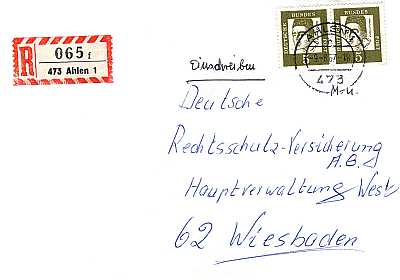 R 065 f
473 Ahlen 1
Einschreiben
DEUTSCHE BUNDESPOST
5 5
473
M-u.
Deutsche
Rechtsschutz-Versicherung
A.G.
Hauptverwaltung West
62 Wiesbaden